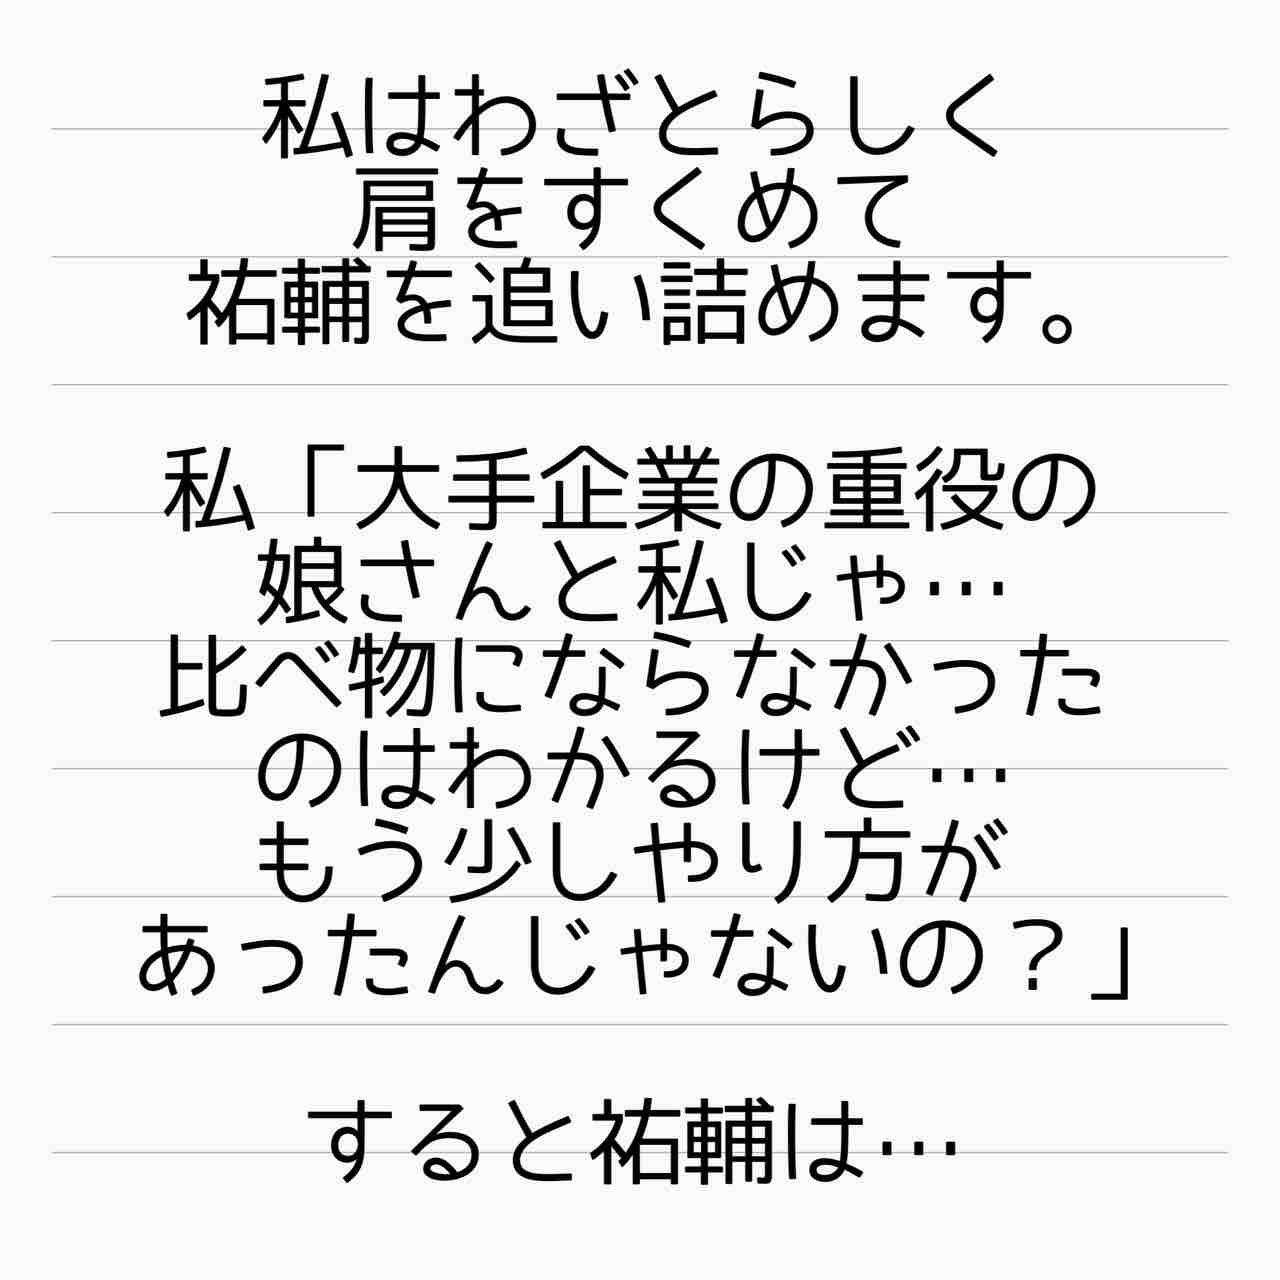 私はわざとらしく
肩をすくめて
祐輔を追い詰めます。
私「大手企業の重役の
娘さんと私じゃ…
比べ物にならなかった
のはわかるけど…
もう少しやり方が
あったんじゃないの？」
すると祐輔は…